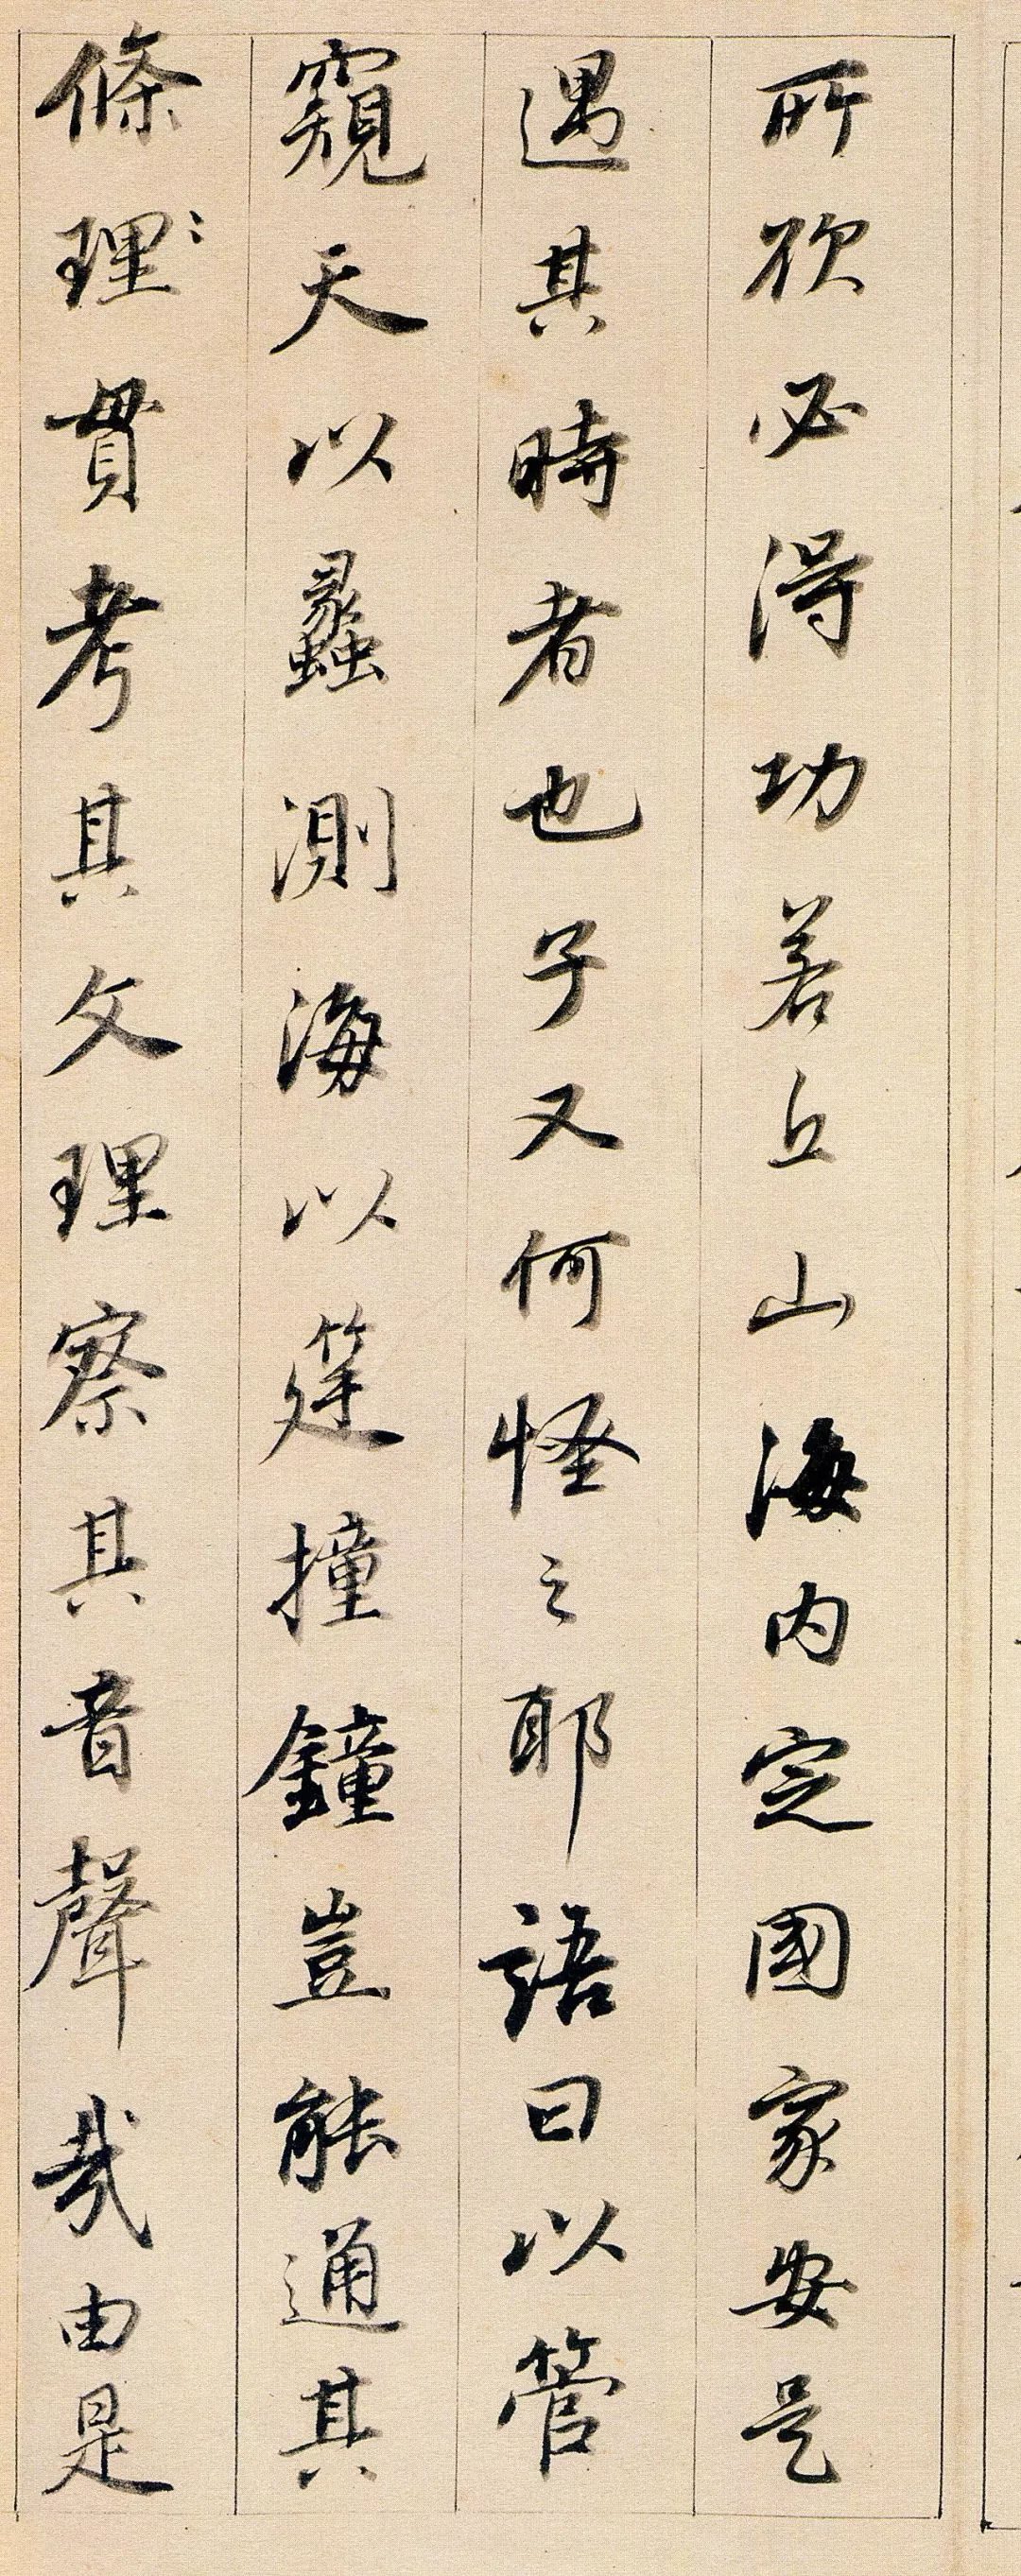 所欲必得功若丘山海內定國家安是
遇其時者也子又何怪之耶語曰以管
窺天以蠡測海以筳撞鐘豈能通其
條理〻貫考其文理察其音聲哉由是